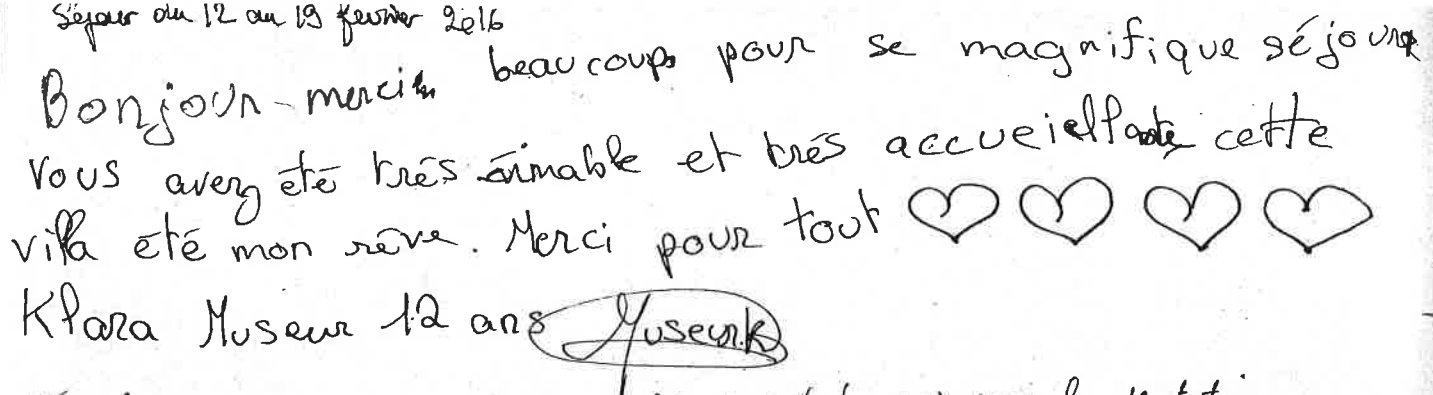 Séjour du 12 au 19 fevrier 2016
Bonjour merci beaucoup pour se magnifique séjour
vous avez été trés aimable et trés accueiellante cette
villa été mon rêve. Merci pour tout ♡ ♡ ♡ ♡
Klara Museur 12 ans Museur.K